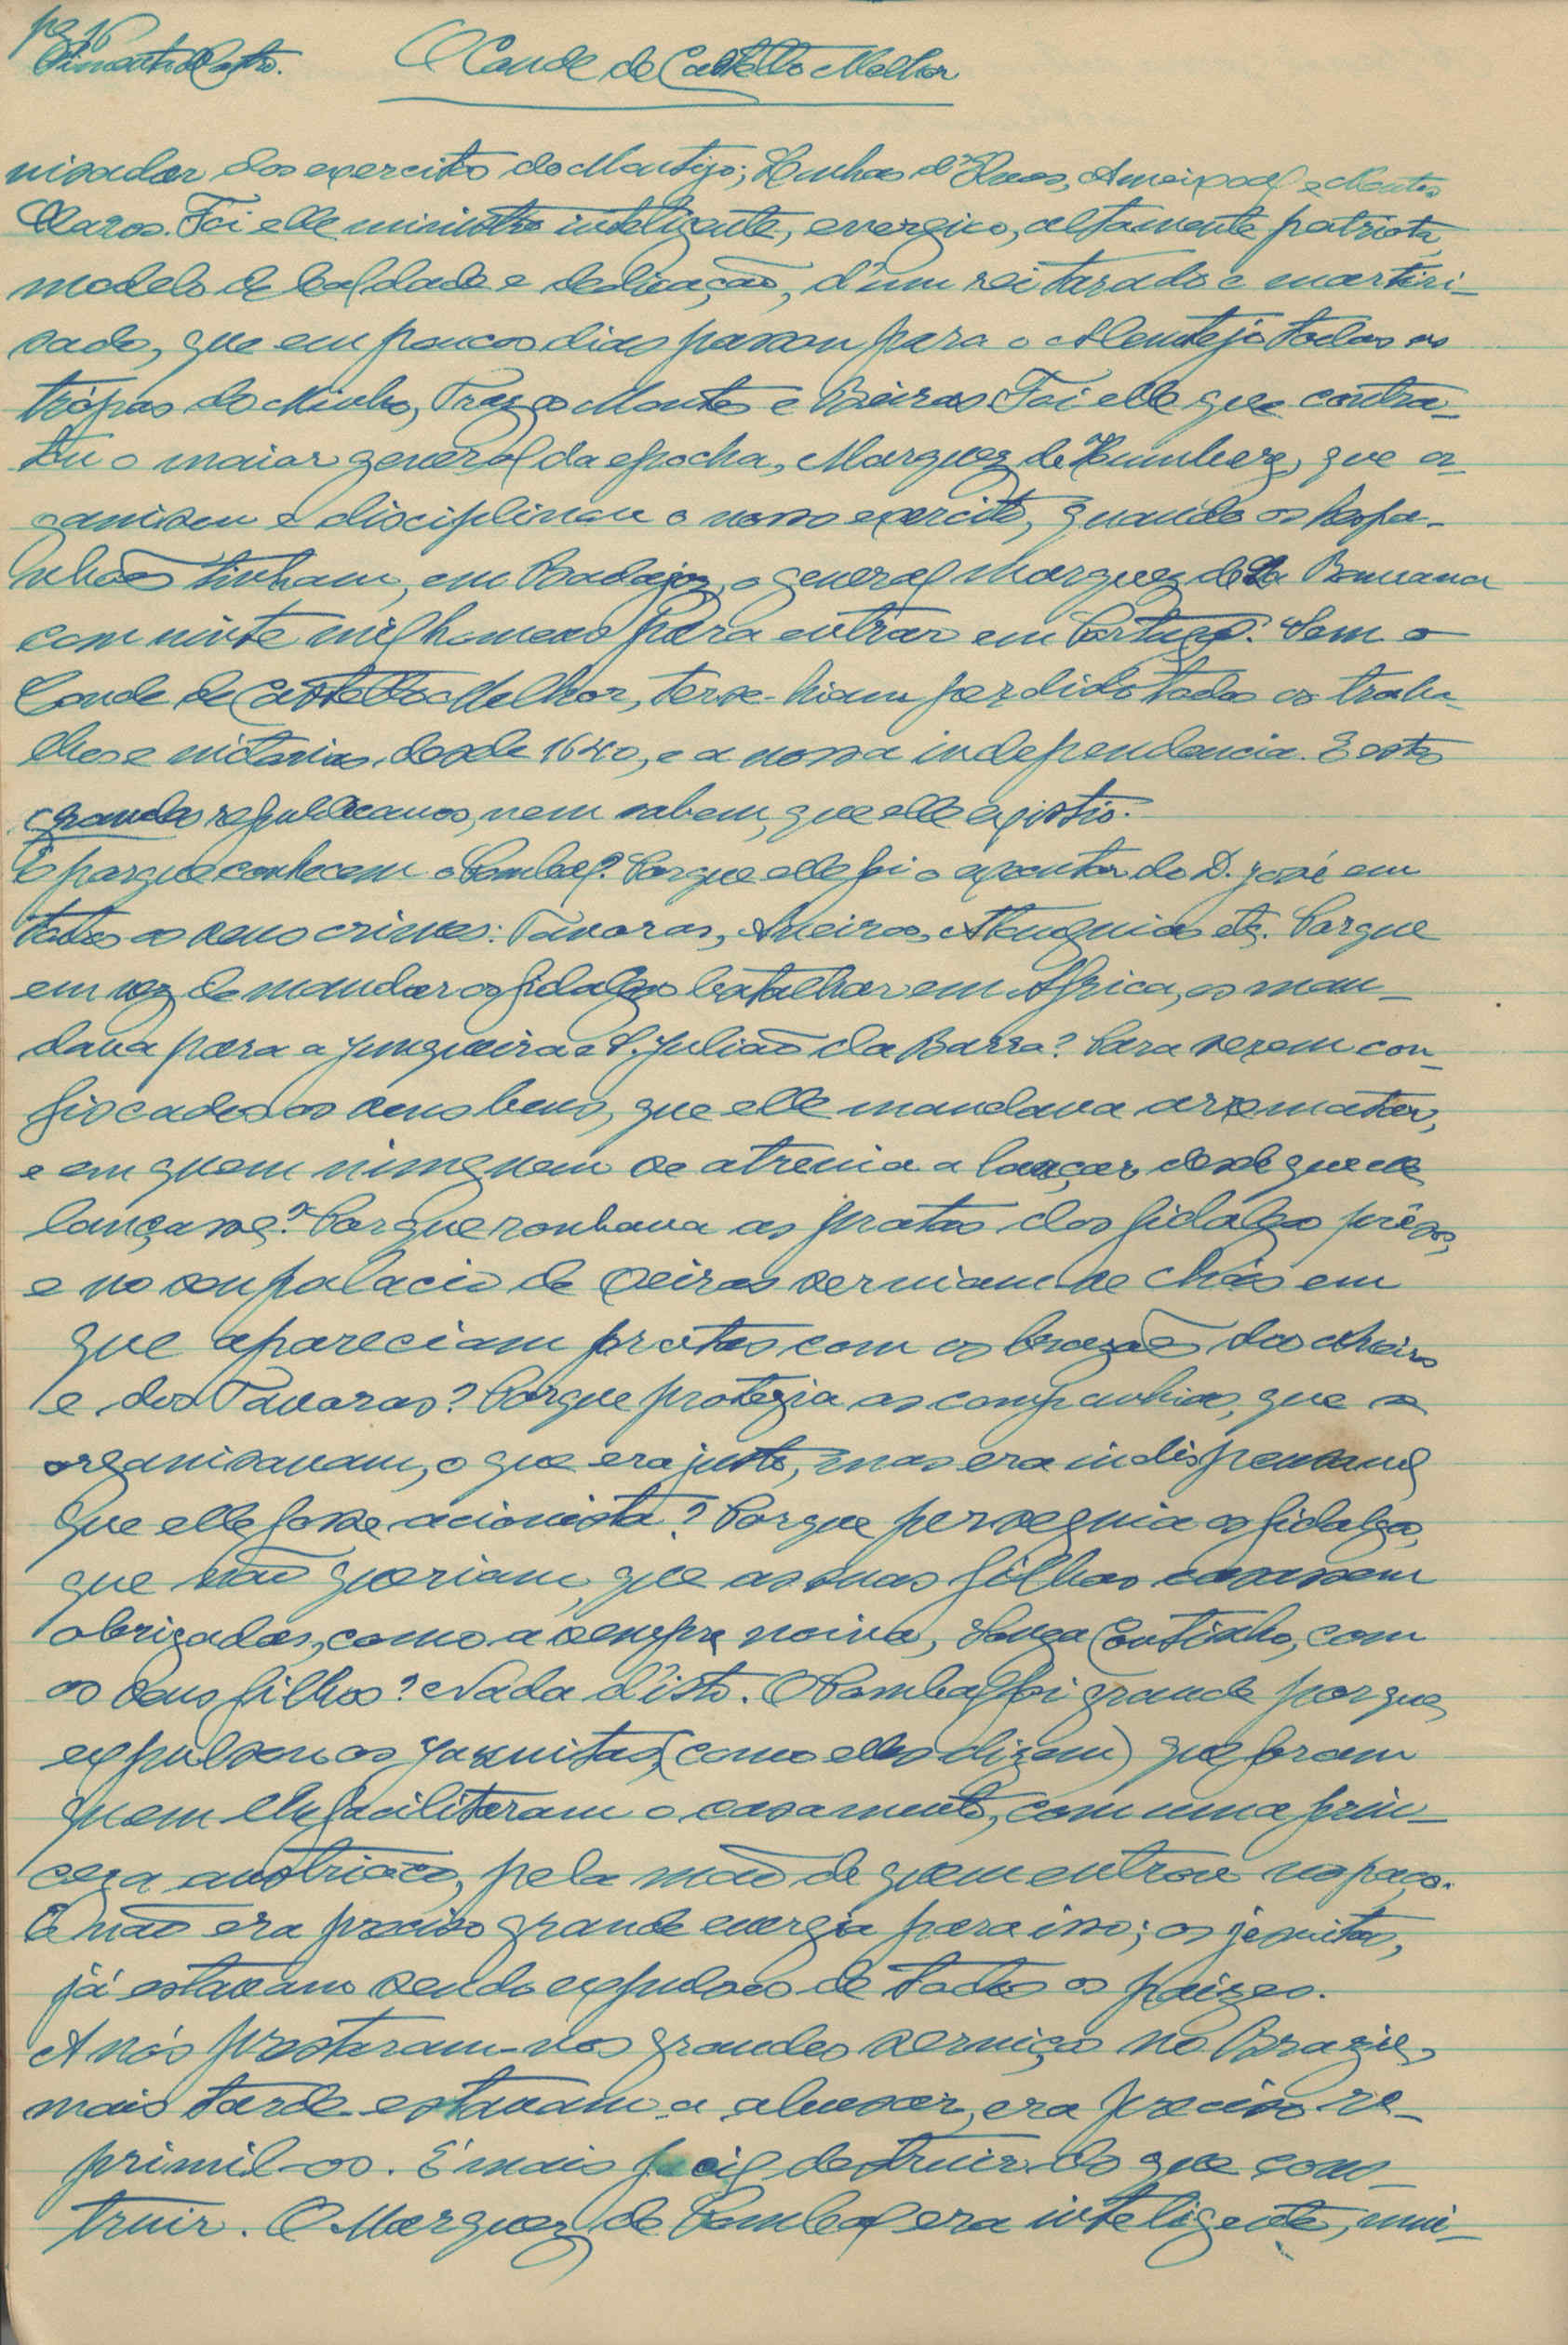 pg 16
Pimenta de Castro.
O Conde de Castello Melhor
nisador dos exercitos do Montijo; Linhas d'Elvas, Ameixoal e Montes
Claros. Foi elle ministro inteligente, energico, altamente patriota,
modelo de lealdade e dedicação, d'um rei tarado e martiri-
sado, que em poucos dias passou para o Alemtejo todas as
trópas do Minho, Traz os Montes e Beiras. Foi elle que contra-
tou o maior general da epocha, Marquez de que or-
ganisou e disciplinou o nosso exercito, quando os hespa-
nhoes tinham, em Badajoz, o general marquez de
com vinte mil homens para entrar em Portugal. Sem o
Conde de Castello Melhor, ter-se-hiam perdido todos os traba-
lhos e victorias, desde 1640, e a nossa independencia. E estes
grandes republicanos, nem sabem, que elle existio.
E porque conhecem o Pombal? Porque elle foi o executor do D. José em
todos os seus crimes: Tavoras, Aveiros, Atouguias etc. Porque
em vez de mandar os fidalgos batalhar em Africa, os man-
dava para a Junqueira e S. Julião da Barra? Para serem con-
fiscados os seus bens, que elle mandava arrematar,
e em quem ninguem se atrevia a lançar, desde que elle
lançasse? Porque roubava as pratas dos fidalgos prêsos,
e no seu palacio de Oeiras serviam-se chás em
que apareciam pratas com os brazões dos Aveiros
e dos Tavoras? Porque protegia as companhias, que se
organisavam, o que era justo, mas era indispensavel
que elle fosse acionista? Porque perseguia os fidalgos,
que não queriam, que as suas filhas casassem
obrigadas, como a sempre noiva, Souza Coutinho, com
os seus filhos? Nada d'isto. O Pombal foi grande porque,
expulsou os jasuitas, (como elles dizem) que foram
quem lhe facilitaram o casamento, com uma prin-
ceza austriaca, pela mão de quem entrou no paço.
E não era preciso grande energia para isso; os jesuitas,
já estavam sendo expulsos de todos os paizes.
A nós prestaram-nos grandes serviços no Brazil,
mais tarde estavam a abusar, era preciso re-
primil-os. É mais facil destruir do que cons-
truir. O Marquez de Pombal era inteligente, mui-